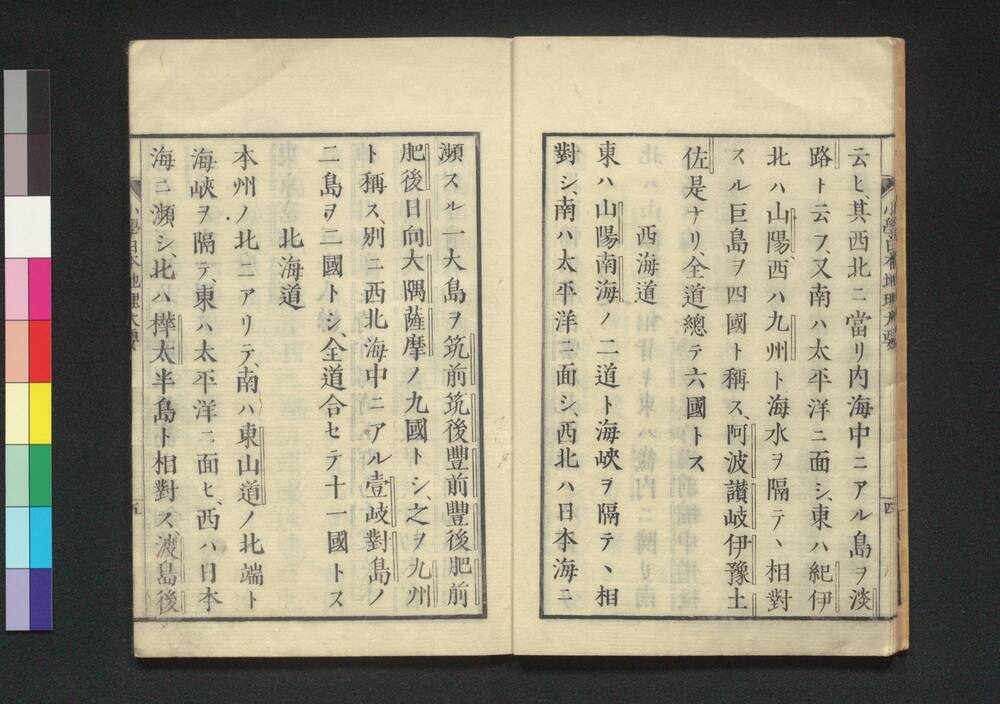 云ヒ、其西北ニ當リ内海中ニアル島ヲ淡
路ト云フ、又南ハ太平洋ニ面シ、東ハ紀伊
北ハ山陽、西ハ九州ト海水ヲ隔テヽ相對
スル巨島ヲ四國ト稱ス、阿波讃岐伊豫土
佐是ナリ、全道總テ六國トス
西海道
東ハ山陽南海ノ二道ト海峽ヲ隔テヽ相
對シ、南ハ太平洋ニ面シ、西北ハ日本海ニ
四
瀕スル一大島ヲ筑前筑後豐前豐後肥前
肥後日向大隅薩摩ノ九國トシ、之ヲ九州
ト稱ス、別ニ西北海中ニアル壹岐對島ノ
二島ヲ二國トシ、全道合セテ十一國トス
北海道
本州ノ北ニアリテ、南ハ東山道ノ北端ト
海峽ヲ隔テ、東ハ太平洋ニ面ヒ、西ハ日本
海ニ瀕シ、北ハ樺太半島ト相對ス渡島後
小學日本地理大要
五